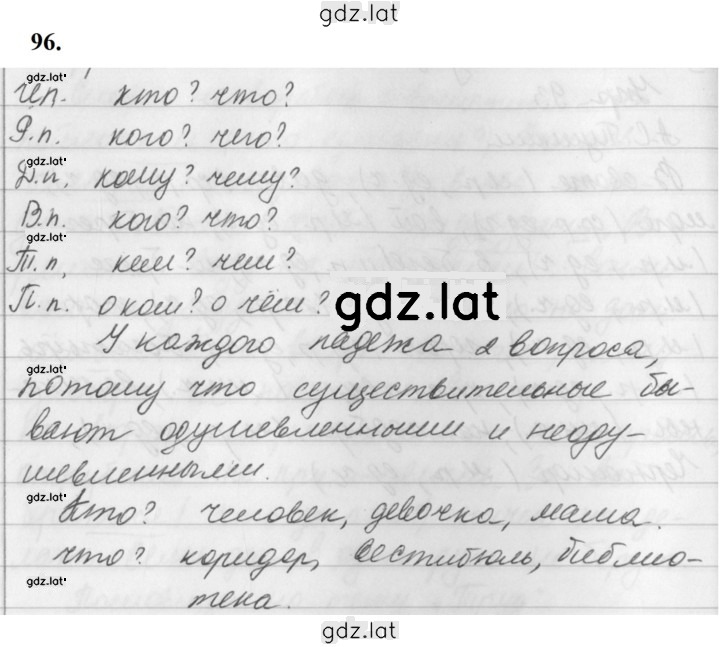 gdz.lat
96.
gdz.lat
И.п. кто? что?
Р.п. кого? чего?
gdz.lat
Д.п. кому? чему?
В.п. кого? что?
gdz.lat
Т.п. кем? чем?
П.п. о ком? о чём?
gdz.lat
У каждого падежа 2 вопроса,
gdz.lat
потому что существительные бы-
вают одушевленными и неоду-
шевленными.
gdz.lat
Кто? человек, девочка, мама.
что? коридор, вестибюль, библио-
gdz.lat
тека.
gdz.lat